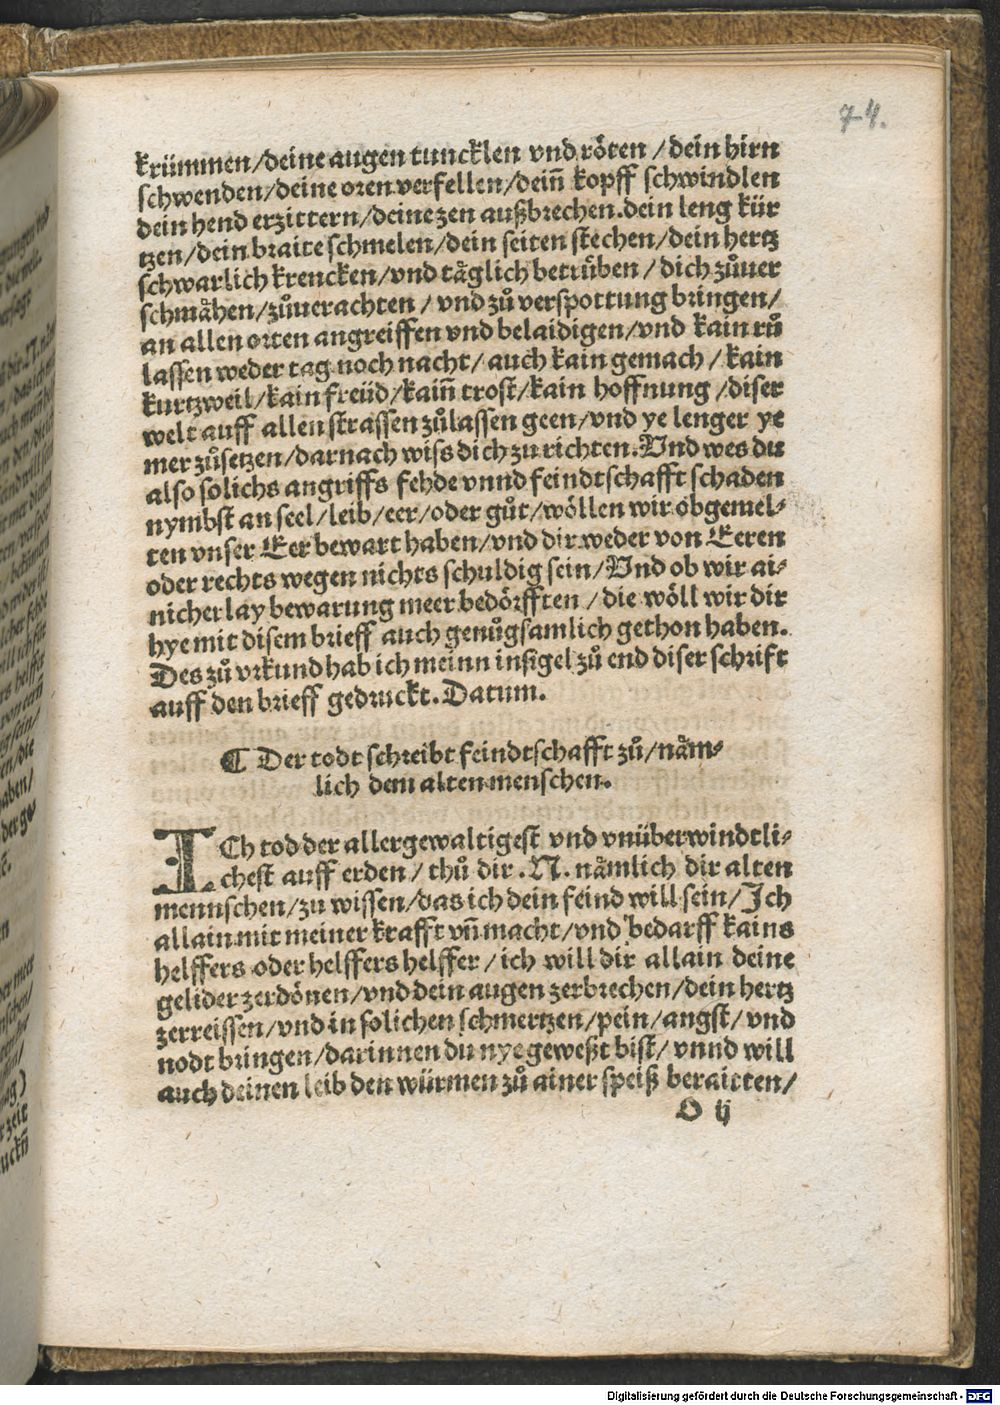 74.
krümmen/deine augen tuncklen vnd röten/dein hirn
schwenden/deine oren verfellen/dein̄ kopff schwindlen
dein hend erzittern/deine zen außbrechen.dein leng kür
tzen/dein braite schmelen/dein seiten stechen/dein hertz
schwarlich krencken/vnd täglich betrüben/dich zůuer
schmähen/zůuerachten/vnd zů verspottung bringen/
an allen orten angreiffen vnd belaidigen/vnd kain rů
lassen weder tag noch nacht/auch kain gemach/kain
kurtzweil/kain freüd/kain̄ trost/kain hoffnung/diser
welt auff allen strassen zůlassen geen/vnd ye lenger ye
mer zůsetzen/darnach wiss dich zu richten.Vnd wes du
also solichs angriffs fehde vnnd feindtschafft schaden
nymbst an seel/leib/eer/oder gůt/wöllen wir obgemel-
ten vnser Eer bewart haben/vnd dir weder von Eeren
oder rechts wegen nichts schuldig sein/Vnd ob wir ai-
nicherlay bewarung meer bedörfften/die wöll wir dir
hye mit disem brieff auch genůgsamlich gethon haben.
Des zů vrkund hab ich meinn insigel zů end diser schrift
auff den brieff gedruckt.Datum.
¶ Der todt schreibt feindtschafft zů/näm-
lich dem alten menschen.
ICh tod der allergewaltigest vnd vnüberwindtli-
chest auff erden/thů dir .N. nämlich dir alten
mennschen/zu wissen/das ich dein feind will sein/Ich
allain mit meiner krafft vn̄ macht/vnd bedarff kains
helffers oder helffers helffer/ich will dir allain deine
gelider zerdönen/vnd dein augen zerbrechen/dein hertz
zerreissen/vnd in solichen schmertzen/pein/angst/vnd
nodt bringen/darinnen du nye geweßt bist/vnnd will
auch deinen leib den würmen zů ainer speiß beraitten/
O ij
Digitalisierung gefördert durch die Deutsche Forschungsgemeinschaft - DFG